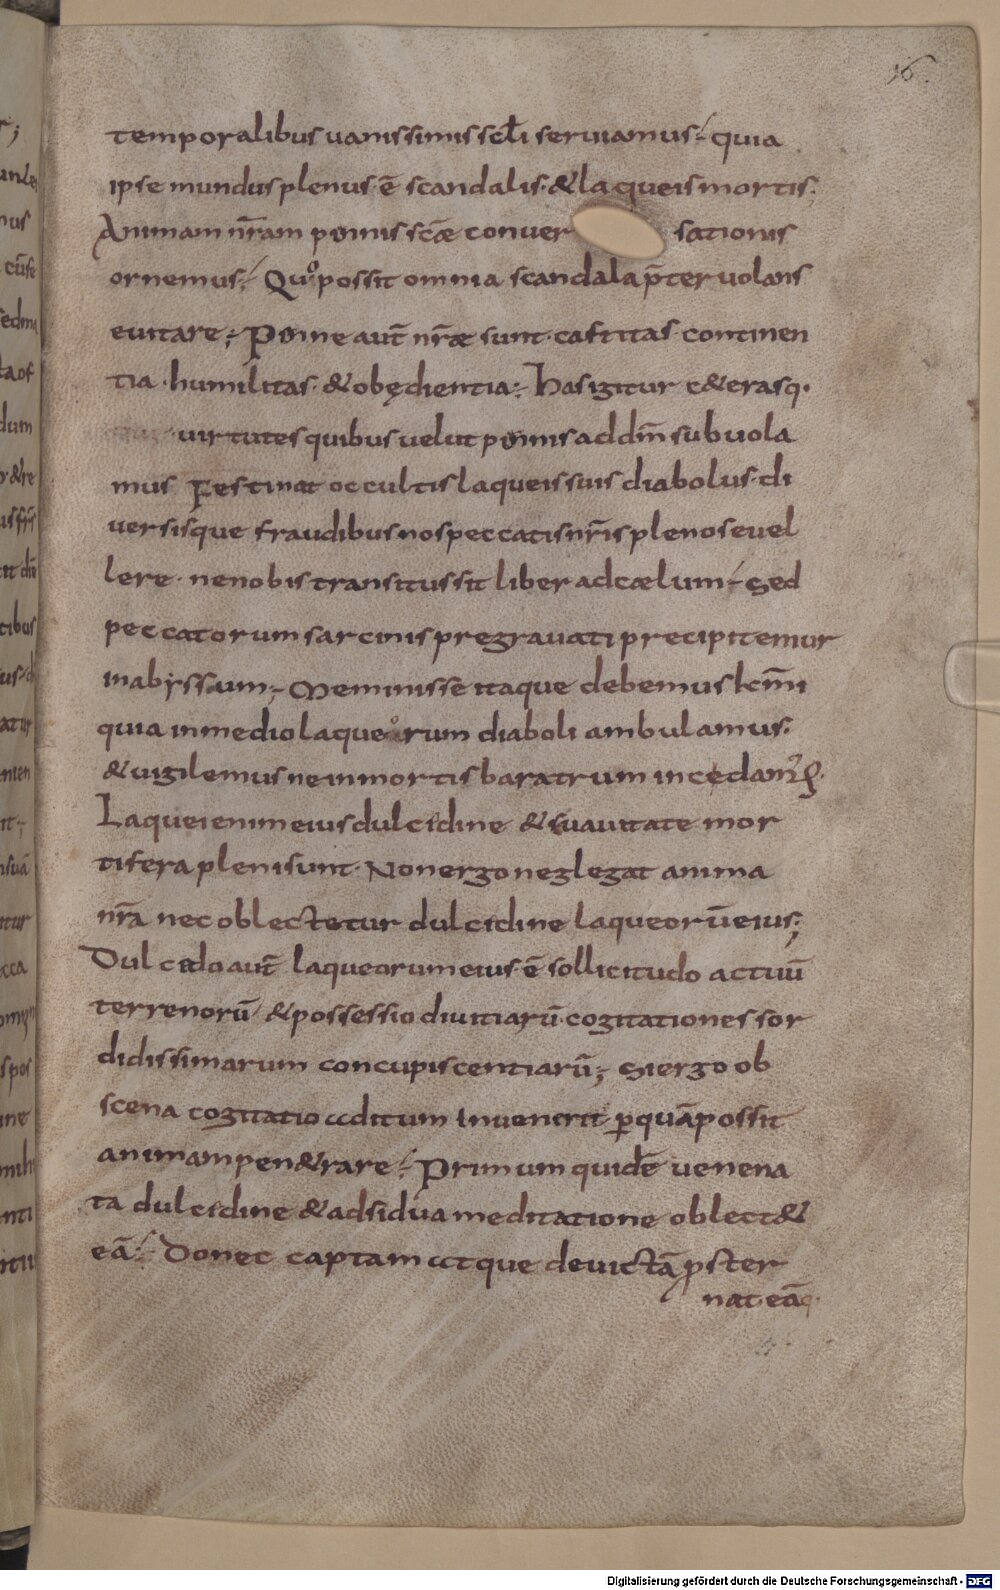 16.
temporalibus uanissimis scl̄i seruiamus; quia
ipse mundus plenus ē scandalis. & laqueis mortis;
Animam nr̄am pennis scǣ conuer sationis
ornemus; Quo possit omnia scandala p̄ter uolans
euitare; Penne aut̄ nr̄æ sunt. castitas continen
tia. humilitas. & obędientia; Has igitur c&erasq.
uirtutes quibus uelut pennis ad dm̄ subuola
mus Festinat occultis laqueis suis diabolus. di
uersisque fraudibus nos peccatis nr̄is plenos euel
lere. ne nobis transitus sit liber ad cælum; Sed
peccatorum sarcinis pregrauati precipitemur
in abyssum; Meminisse itaque debemus kr̄mi
quia in medio laqueorum diaboli ambulamus.
& uigilemus ne in mortis baratrum incedam᷒
Laquei enim eius dulcidine & suauitate mor
tifera pleni sunt. Non ergo neglegat anima
nr̄a nec oblectetur dulcidine laqueorū eius;
Dulcido aut̄ laqueorum eius ē sollicitudo actuū
terrenorū & possessio diuitiarū. cogitationes sor
didissimarum concupiscentiarū; Si ergo ob
scena cogitatio aditum inuenerit ꝑ quā possit
animam pen&rare; Primum quidē uenena
ta dulcidine & adsidua meditatione oblect&
eā; Donec captam atque deuictā ꝓster
nat eā
Digitalisierung gefördert durch die Deutsche Forschungsgemeinschaft - DFG